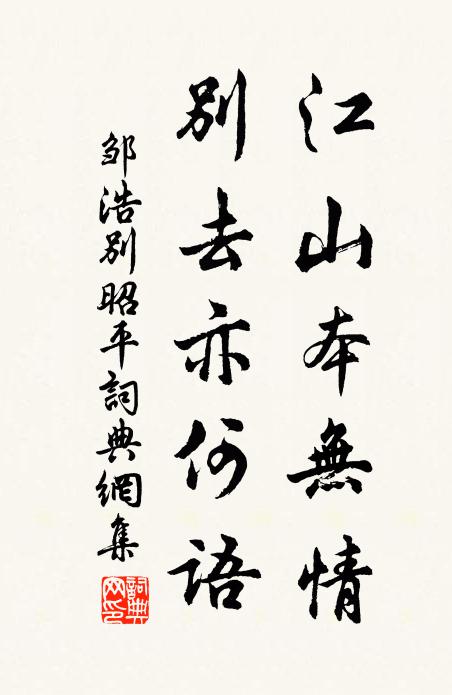 江山本無情
別去亦何語
邹浩別昭平詞典網集
詞典網印